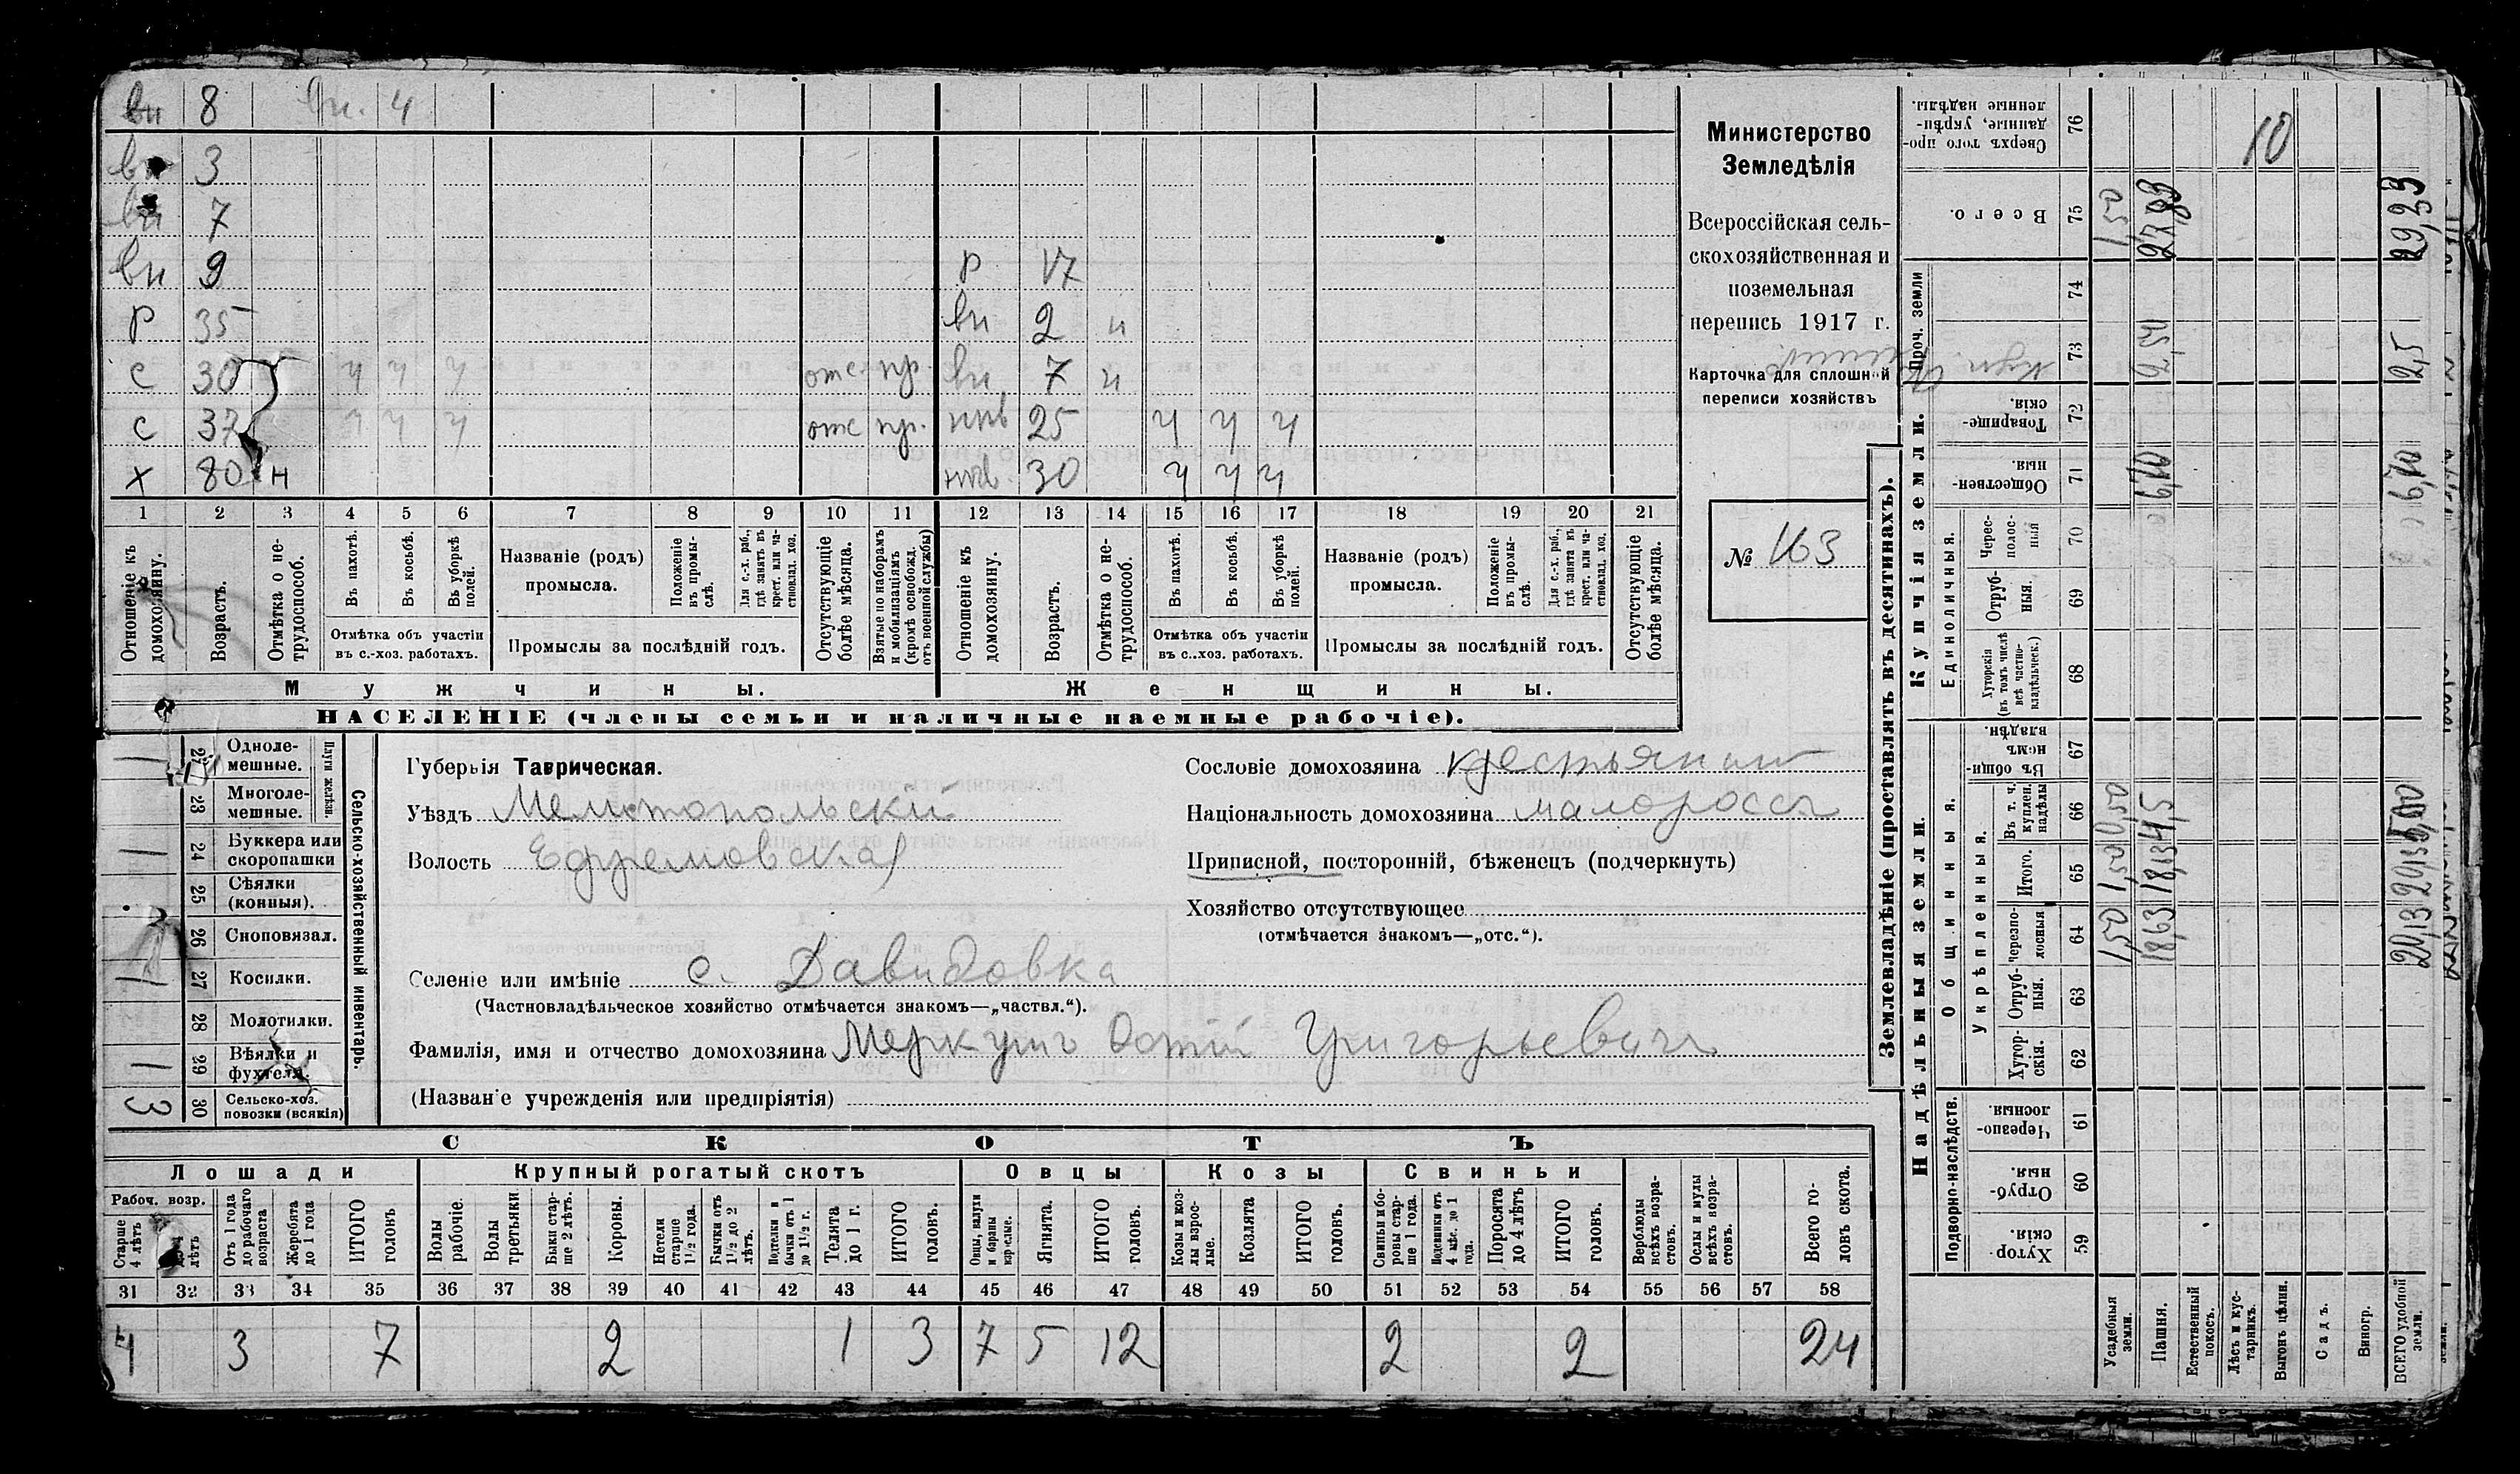 вн 8 вн. 4
вн 3
вн 7
вн 9 р 17
р 35 вн 2 н
с 30 ч ч ч отс пр. вн 7 н
с 37 ч ч ч отс пр. нев 25 ч ч ч
х 80 н нев. 30 ч ч ч
1 2 3 4 5 6 7 8 9 10 11 12 13 14 15 16 17 18 19 20 21
Отношеніе къ домохозяину.
Возрастъ.
Отмѣтка о не-трудоспособ.
Въ пахотѣ.
Въ косьбѣ.
Въ уборкѣ полей.
Отмѣтка объ участіи
въ с.-хоз. работахъ.
Названіе (родъ)
промысла.
Положеніе въ промы-слѣ.
Для с.-х. раб., гдѣ занятъ въ крест. или ча-стновлад. хоз.
Промыслы за послѣдній годъ.
Отсутствующіе болѣе мѣсяца.
Взятые по наборамъ и мобилизаціямъ (кромѣ освобожд. отъ военной службы)
Отношеніе къ домохозяину.
Возрастъ.
Отмѣтка о не-трудоспособ.
Въ пахотѣ.
Въ косьбѣ.
Въ уборкѣ полей.
Отмѣтка объ участіи
въ с..хоз. работахъ.
Названіе (родъ)
промысла.
Положеніе въ промы-слѣ.
Для с.-х. раб., гдѣ занята въ крест. или ча-стновлад. хоз.
Промыслы за послѣдній годъ.
Отсутствующіе болѣе мѣсяца.
Мужчины. Женщины.
НАСЕЛЕНІЕ (члены семьи и наличные наемные рабочіе).
Министерство
Земледѣлія
Всероссійская сель-
скохозяйственная и
поземельная
перепись 1917 г.
Карточка для сплошной
переписи хозяйствъ
№ 163
Сельско-хозяйственный инвентарь.
Плуги желѣзн.
Одноле-
мешные.
23 Многоле-
мешные.
1 24 Буккера или
скоропашки
25 Сѣялки
(конныя).
26 Сноповязал.
1 27 Косилки.
28 Молотилки.
1 29 Вѣялки и
фухтеля.
3 30 Сельско-хоз.
повозки (всякія)
Губернія Таврическая.
Уѣздъ Мелитопольскій
Волость Ефремовская
Селеніе или имѣніе с. Давидовка
(Частновладѣльческое хозяйство отмѣчается знакомъ—„частвл.“).
Фамилія, имя и отчество домохозяина Григорьевичъ
(Названіе учрежденія или предпріятія)
Сословіе домохозяина крестьянин
Національность домохозяина малороссъ
Приписной, посторонній, бѣженецъ (подчеркнуть)
Хозяйство отсутствующее
(отмѣчается знакомъ—„отс.“).
СКОТЪ
Лошади Крупный рогатый скотъ Овцы Козы Свиньи
Рабоч. возр.
Старше 4 лѣтъ
лѣтъ
Отъ 1 года до рабочаго возраста
Жеребята до 1 года
ИТОГО головъ
Волы рабочіе.
Волы третьяки.
Быки стар-ше 2 лѣтъ.
Коровы.
Нетели старше 1½ года.
Бычки отъ 1½ до 2 лѣтъ.
Подтелки и бычки отъ 1 до 1½ г.
Телята до 1 г.
ИТОГО головъ.
Овцы, валухи и бараны взрослые.
Ягнята.
ИТОГО головъ.
Козы и коз-лы взрос-лые.
Козлята
ИТОГО головъ.
Свиньи и бо-ровы стар-ше 1 года.
Подсвинки отъ 4 мѣс. до 1 года.
Поросята до 4 лѣтъ
ИТОГО головъ.
Верблюды всѣхъ возра-стовъ.
Ослы и мулы всѣхъ возра-стовъ.
Всего го-ловъ скота.
31 32 33 34 35 36 37 38 39 40 41 42 43 44 45 46 47 48 49 50 51 52 53 54 55 56 57 58
4 3 7 2 1 3 7 5 12 2 2 24
Землевладѣніе (проставлять въ десятинахъ).
Надѣльныя земли. Купчія земли.
Подворно-наслѣдств.
Общинныя.
Укрѣпленныя.
Единоличныя.
Проч. земли
Хутор-скія. 59
Отруб-ныя. 60
Черезпо-лосныя. 61
Хутор-скія. 62
Отруб-ныя. 63
Черезпо-лосныя 64
Итого. 65
Въ т. ч. куплен. надѣлы 66
Въ общи-нномъ владѣн. 67
Хуторскія (въ томъ числѣ всѣ частно-владѣльческ.) 68
Отруб-ныя. 69
Черес-полос-ныя 70
Обществен-ныя. 71
Товарище-скія. 72
73
74
Всего. 75
Сверхъ того про-данные, укрѣп-ленные надѣлы. 76
Усадебныя земли. 1,50 1,50 0,50 1,50
Пашня. 18,63 18,63 4,5 6,70 2,5 27,83
Естественный покосъ.
Лѣсъ и кус-тарникъ.
Выгонъ цѣлин. 10
Садъ.
Виногр.
ВСЕГО удобной земли. 20,13 20,13 5,00 6,70 2,5 29,33